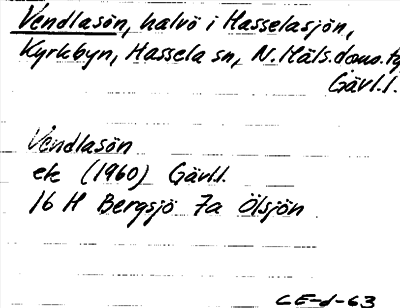 Vendlasön, halvö i Hasselasjön,
Kyrkbyn, Hassela sn, N. Häls. doms. tg
Gävl.l.
Vendlasön
ek (1960) Gävl.l.
16 H Bergsjö 7a Ölsjön
CE-d-63